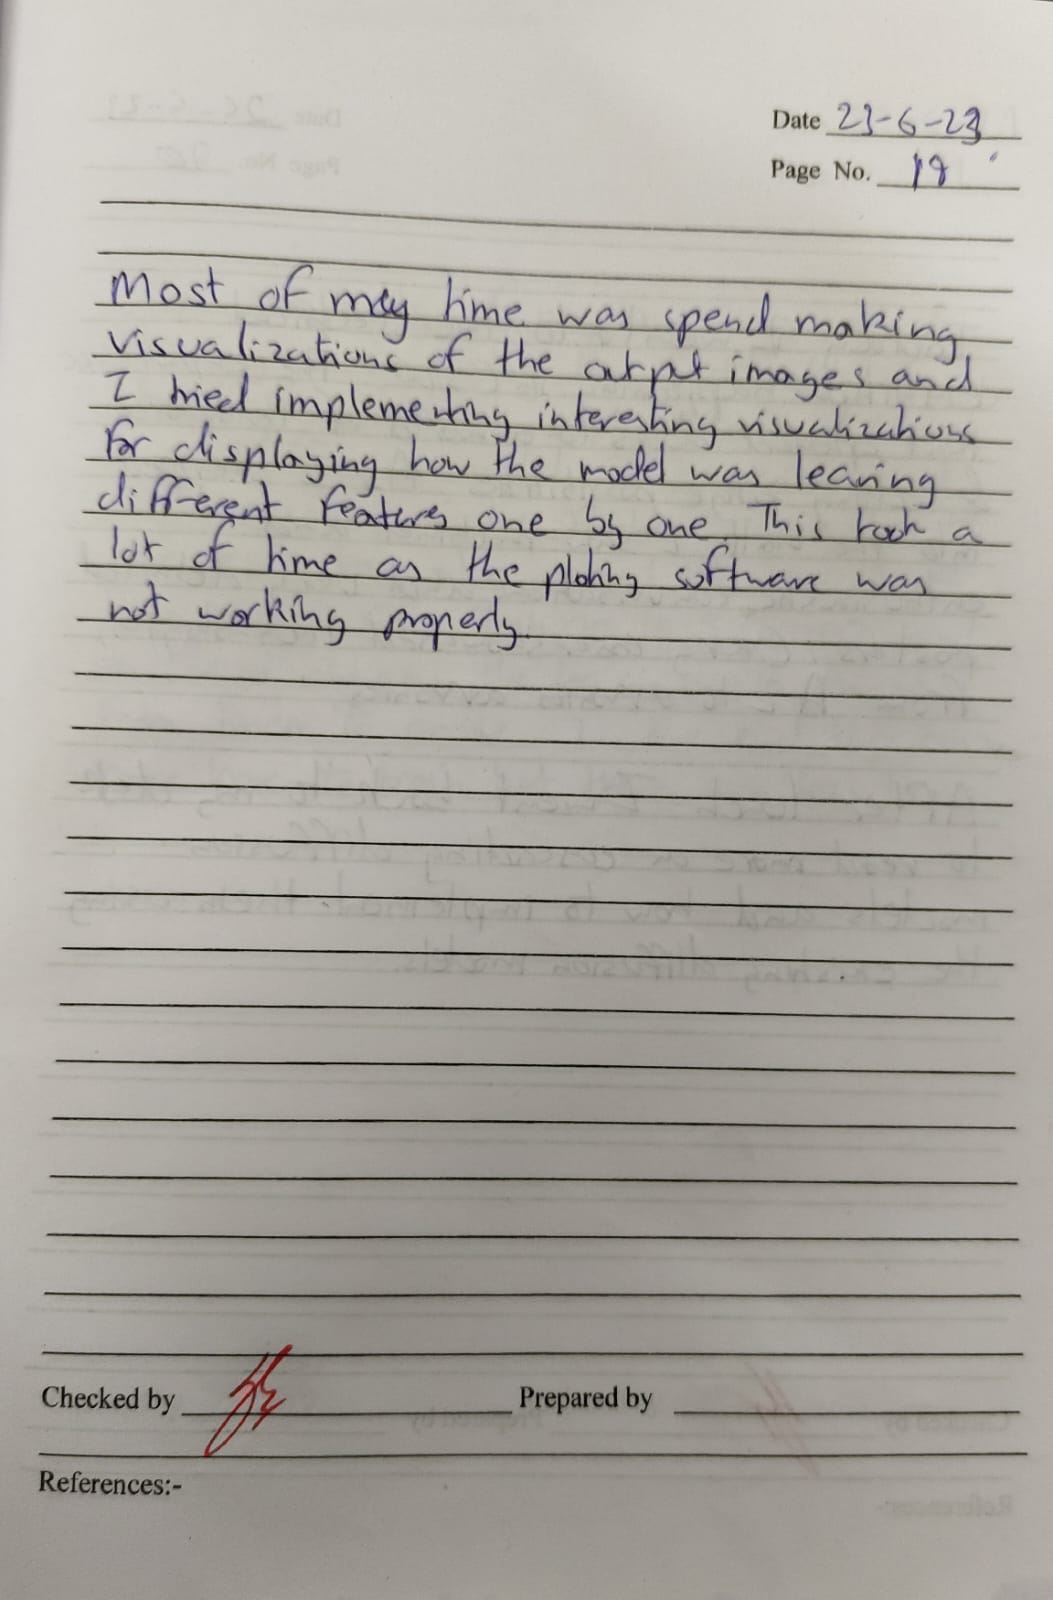 Date 23-6-23
Page No. 19
Most of my time was spend making
visualizations of the output images and
I tried implementing interesting visualizations
for displaying how the model was learing
different features one by one. This took a
lot of time as the ploting software was
not working properly.
Checked by
Prepared by
References:-